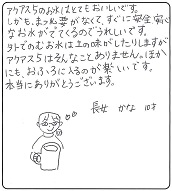 アクアス5のお水はとてもおいしいです。
しかも、まつ必要がなくて、すぐに安全
なお水がでてくるのでうれしいです。
外でのむお水は土の味がしたりしますが
アクアス5はそんなことありません。ほか
にも、おふろに入るのが楽しいです。
本当にありがとうございます。
長女 かな 10才